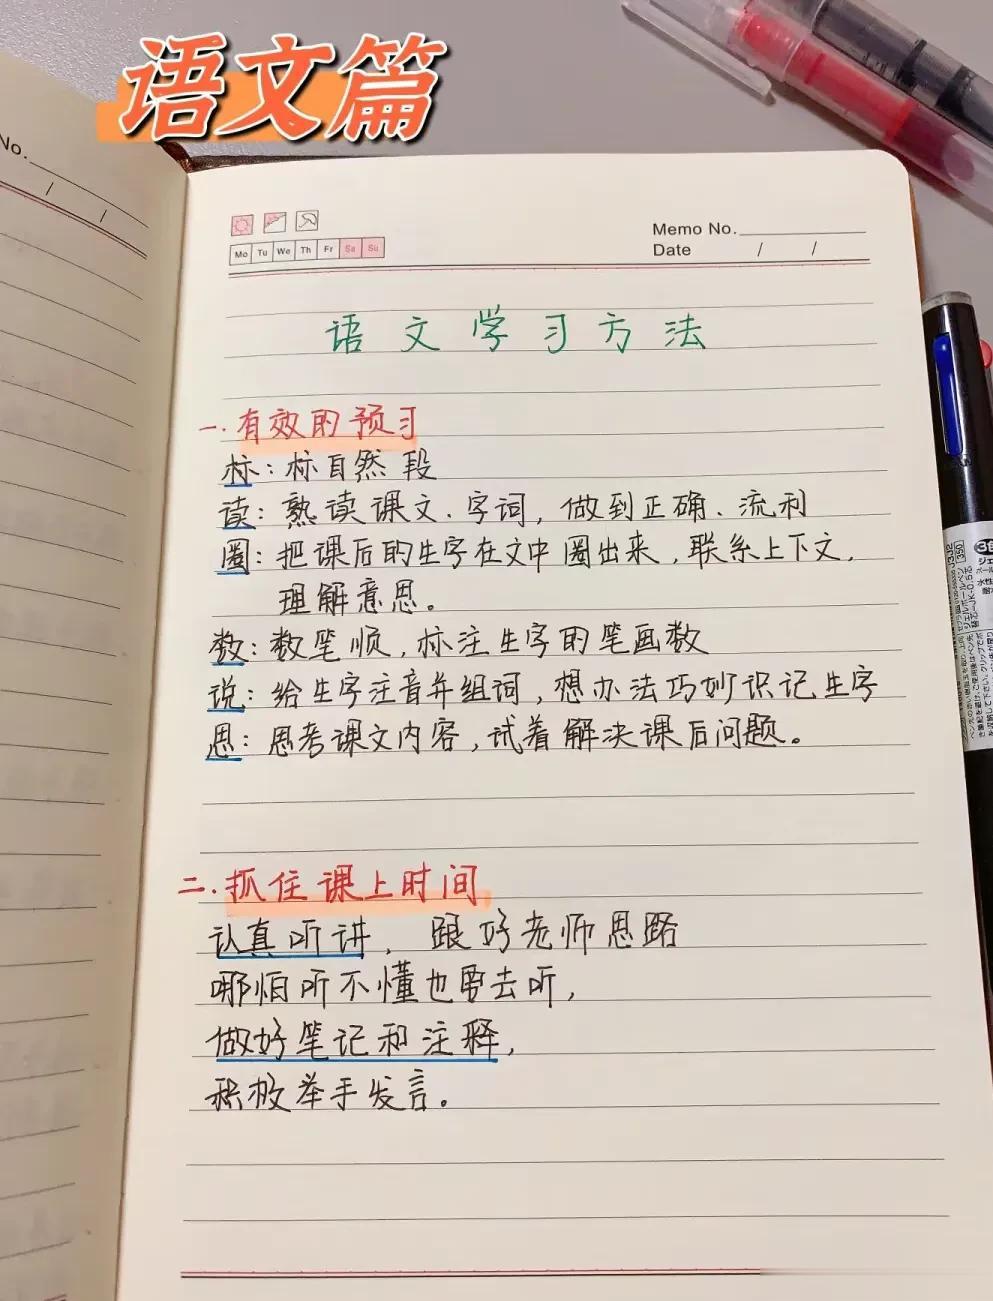 语文篇
No.
Mo Tu We Th Fr Sa Su
Memo No.
Date / /
语文学习方法
一.有效的预习
标:标自然段
读:熟读课文、字词,做到正确、流利
圈:把课后的生字在文中圈出来,联系上下文,
理解意思。
数:数笔顺,标注生字的笔画数
说:给生字注音并组词,想办法巧妙识记生字
思:思考课文内容,试着解决课后问题。
二.抓住课上时间
认真听讲,跟好老师思路
哪怕听不懂也要去听,
做好笔记和注释,
积极举手发言。